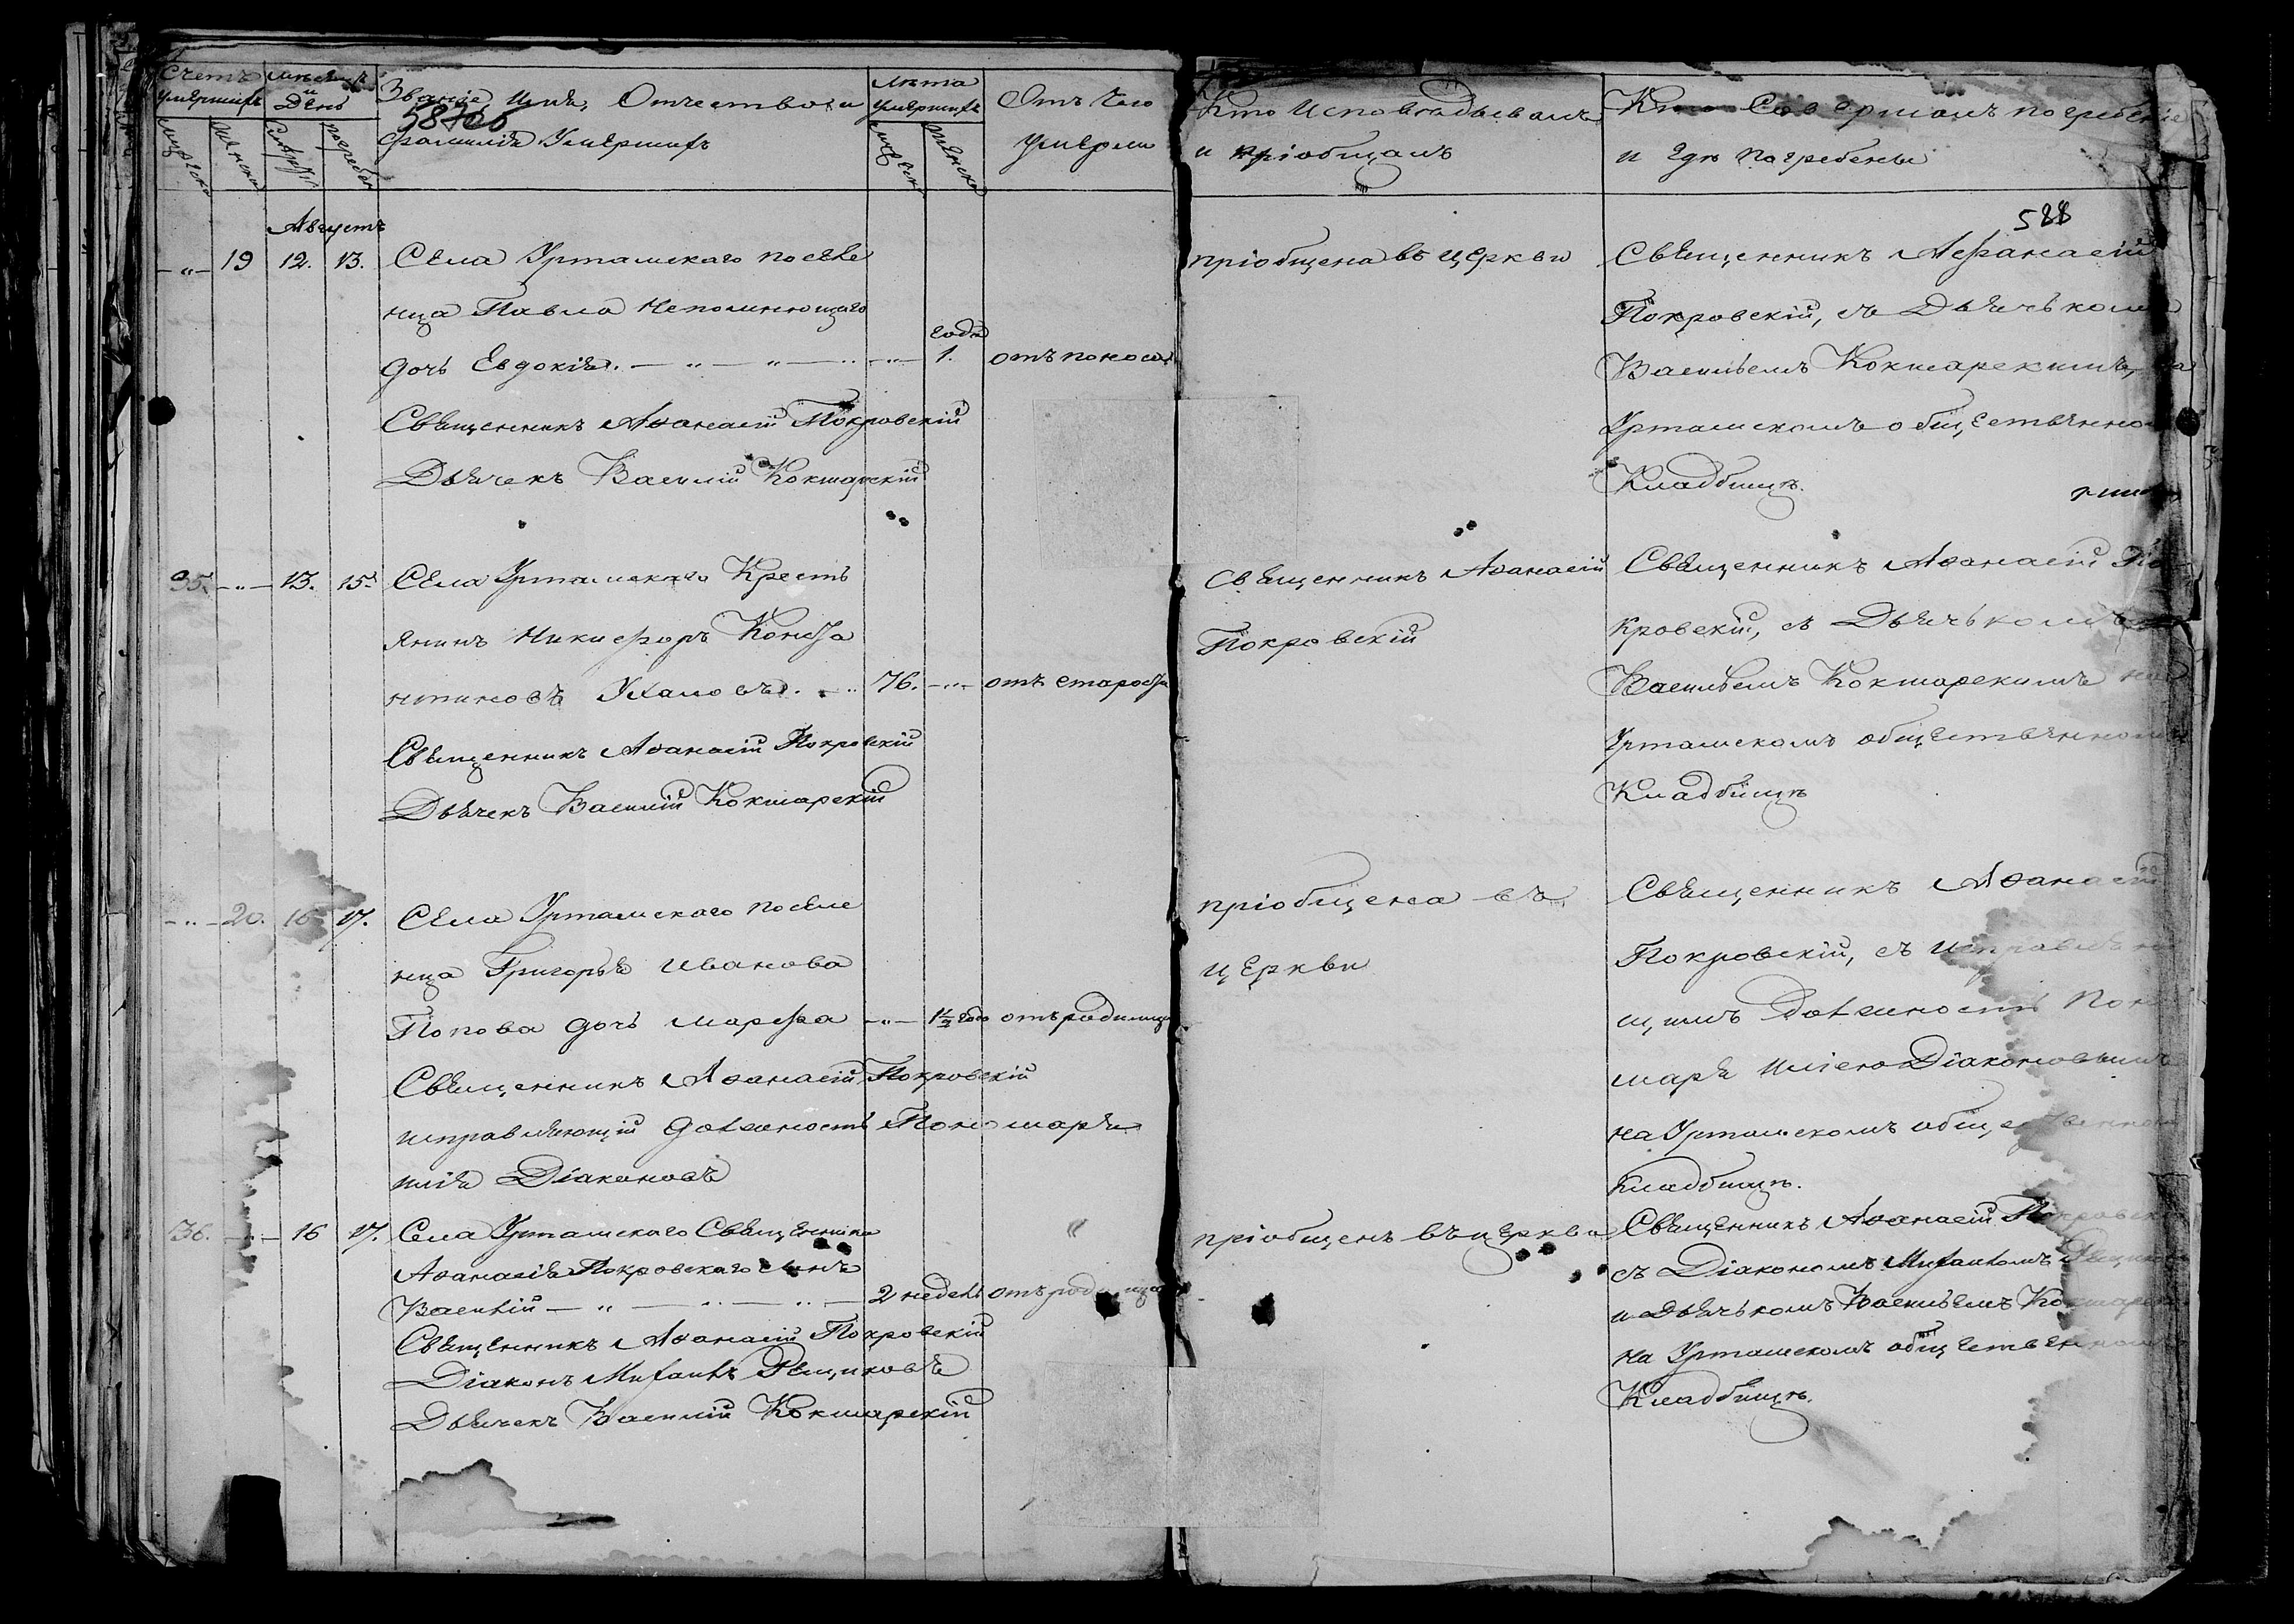 Счетъ умершихъ
Мужеска
Женска
Мѣсяцъ и День
Смерти
погребен
Званіе, Имя, Отчество и
587об
фамилія Умершихъ
Лѣта умершихъ
Мужеска
Женска
Отъ чего
умерли
Кто Исповѣдывалъ
и пріобщалъ
Кто Совершалъ погребеніе
и гдѣ погребены
588
Августъ
19 12. 13. Села Уртамскаго поселе
нца Павла Непомнющаго
года
дочь Евдокія. 1. отъ поноса
Священникъ Аѳанасій Покровскій
Дьячекъ Василій Кокшарскій
пріобщена въ церкви
Священникъ Афанасій
Покровскій, съ Дьячькомъ
Васильемъ Кокшарскимъ, на
Уртамскомъ общественно
Кладбищѣ.
35. 13. 15. Села Уртамскаго Кресть
янинъ Никифоръ Конста
нтиновъ 76. отъ старости
Священникъ Аѳанасій Покровскій
Дьячекъ Василій Кокшарскій
Священникъ Аѳанасій
Покровскій
Священникъ Аѳанасій По
кровскій, съ Дьячькомъ
Васильемъ Кокшарскимъ на
Уртамскомъ общественномъ
Кладбищѣ
20. 16 17. Села Уртамскаго поселе
нца Григорья Иванова
Попова дочь Марфа 1½ года отъ родимца
Священникъ Аѳанасій Покровскій
исправляющій должность Пономаря
Илія Діаконовъ
пріобщена въ
церкви
Священникъ Аѳанасій
Покровскій, съ исправляю
щимъ Должность Поно
маря Иліею Діаконовымъ
на Уртамскомъ общественно
Кладбищѣ.
36. 16 17. Села Уртамскаго Священника
Аѳанасія Покровскаго сынъ
Василій 2 недель отъ родимца
Священникъ Аѳанасій Покровскій
Діаконъ Михаилъ Рещиковъ
Дьячекъ Василій Кокшарскій
пріобщенъ въ церкви
Священникъ Аѳанасій Покровск
съ Діакономъ Михаиломъ Рещико
и Дьячькомъ Васильемъ Кокшарск
на Уртамскомъ общественном
Кладбищѣ.